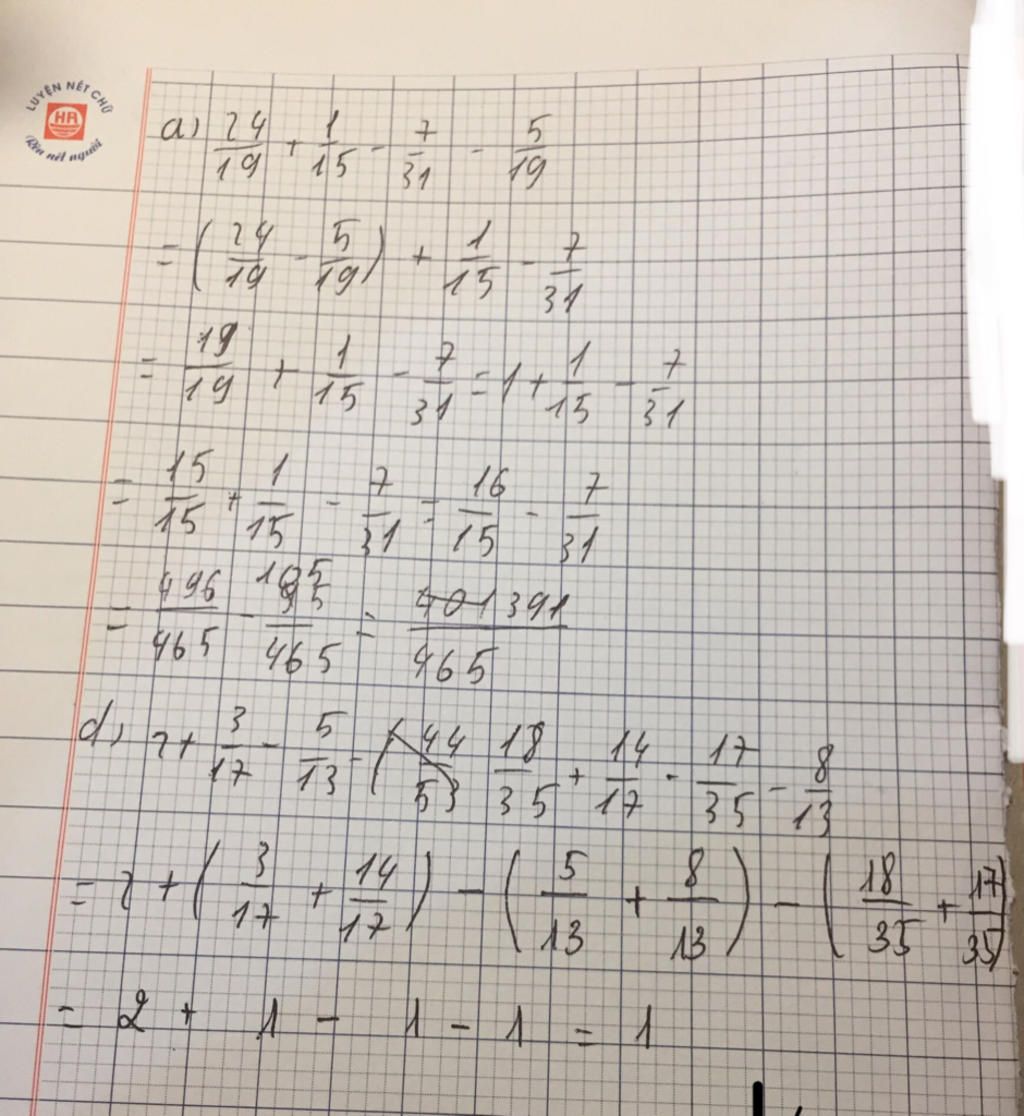 LUYỆN NÉT CHỮ
HA
Rèn nết người
a) 24/19 + 1/15 - 7/31 - 5/19
= (24/19 - 5/19) + 1/15 - 7/31
= 19/19 + 1/15 - 7/31 = 1 + 1/15 - 7/31
= 15/15 + 1/15 - 7/31 = 16/15 - 7/31
= 496/465 - 105/465 = 391/465
d) 2 + 3/17 - 5/13 - 18/35 + 14/17 - 17/35 - 8/13
= 2 + (3/17 + 14/17) - (5/13 + 8/13) - (18/35 + 17/35)
= 2 + 1 - 1 - 1 = 1